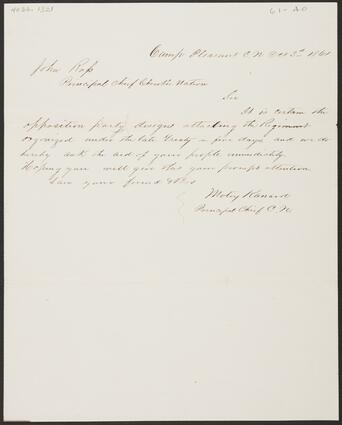 4026.1321
61-40
Camp Pleasant C.N. Oct 3rd 1861
John Ross
Principal Chief Cherokee Nation
Sir
It is certain the
opposition party designs attacking the Regiment
organized under the late Treaty in five days and we do
hereby ask the aid of your people immediately.
Hoping you will give this your prompt attention
I am your friend &c
Motey Kanard
Principal Chief C.N.